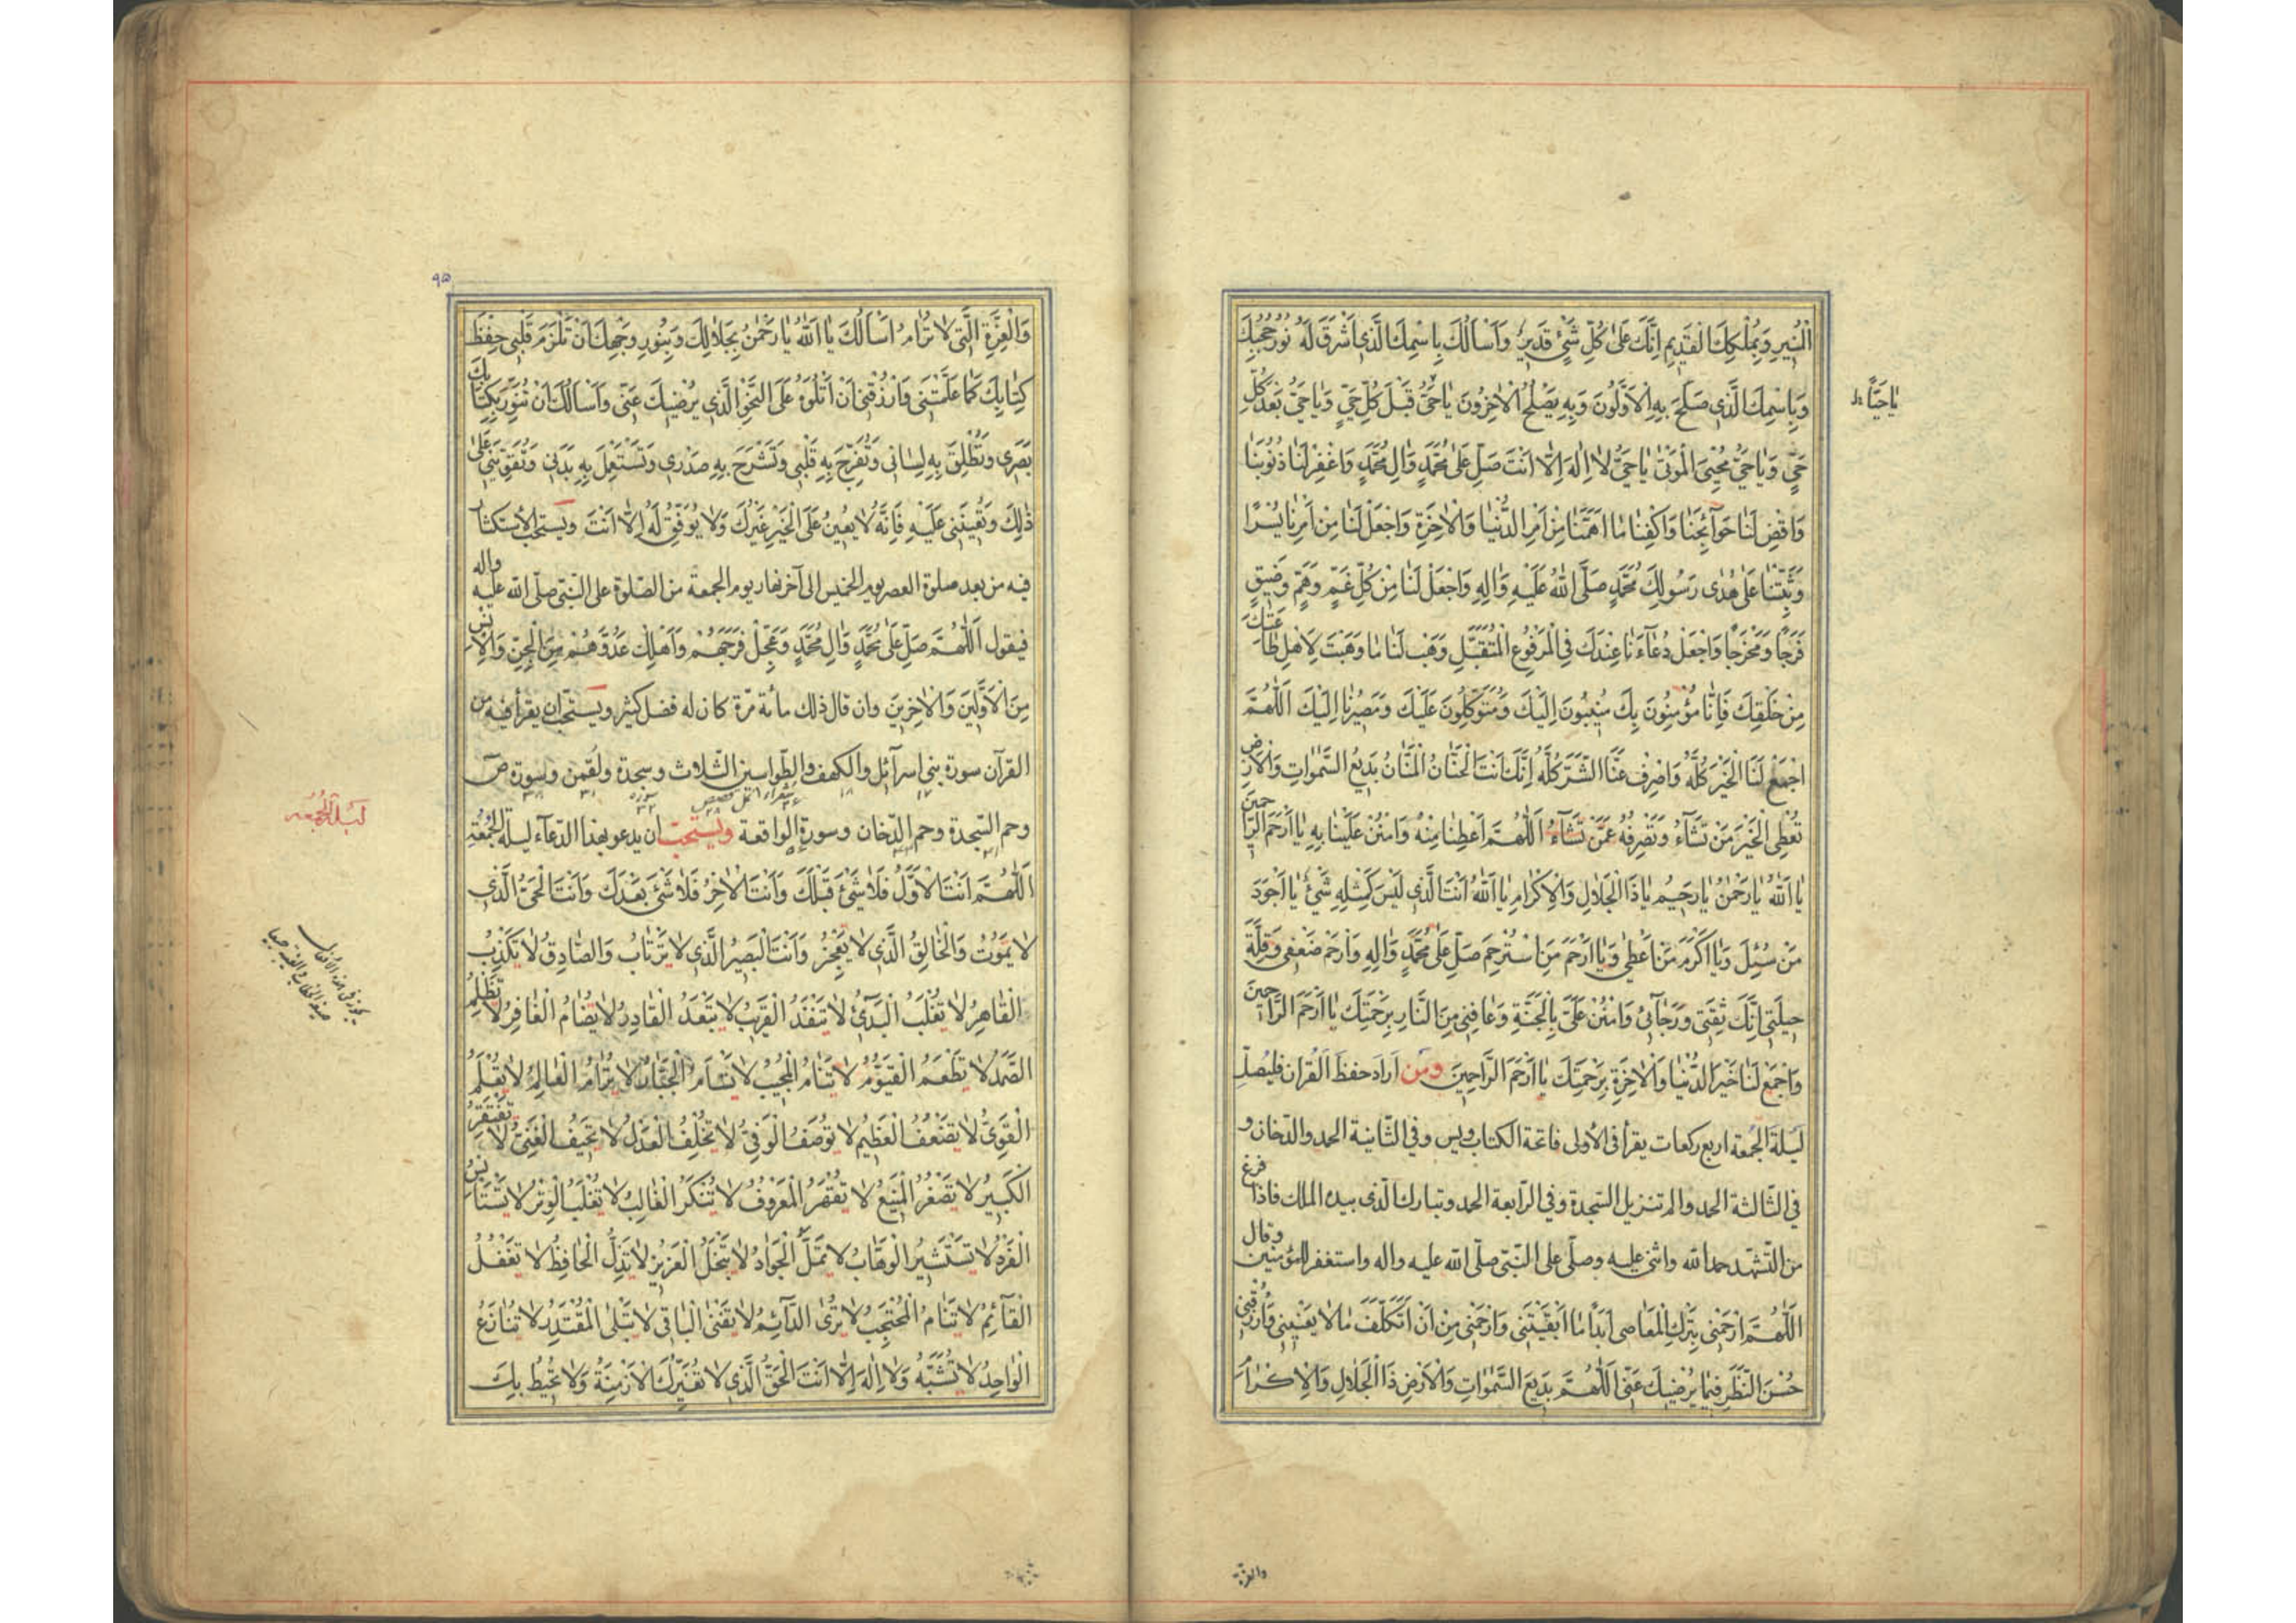 الْمُنِيرِ وَبِمُلْكِكَ الْقَدِيمِ اِنَّكَ عَلٰى كُلِّ شَیْءٍ قَدِيرٌ وَاَسْاَلُكَ بِاسْمِكَ الَّذِي اَشْرَقَ لَهُ نُورُ حُجُبِكَ
وَبِاسْمِكَ الَّذِي صَلَحَ بِهِ الْاَوَّلُونَ وَبِهِ يَصْلُحُ الْاٰخِرُونَ يٰا حَیُّ قَبْلَ كُلِّ حَیٍّ وَيٰا حَیُّ بَعْدَ كُلِّ
يٰا حَيّاً
حَیٍّ وَيٰا حَیُّ مُحْيِیَ الْمَوْتٰى يٰا حَیُّ لٰا اِلٰهَ اِلّٰا اَنْتَ صَلِّ عَلٰى مُحَمَّدٍ وَاٰلِ مُحَمَّدٍ وَاغْفِرْ لَنٰا ذُنُوبَنٰا
وَاقْضِ لَنٰا حَوٰآئِجَنٰا وَاكْفِنٰا مٰا اَهَمَّنٰا مِنْ اَمْرِ الدُّنْيٰا وَالْاٰخِرَةِ وَاجْعَلْ لَنٰا مِنْ اَمْرِنٰا يُسْرًا
وَثَبِّتْنٰا عَلٰى هُدٰى رَسُولِكَ مُحَمَّدٍ صَلَّى اللّٰهُ عَلَيْهِ وَاٰلِهِ وَاجْعَلْ لَنٰا مِنْ كُلِّ غَمٍّ وَهَمٍّ وَضِيقٍ
فَرَجًا وَمَخْرَجًا وَاجْعَلْ دُعٰآءَنٰا عِنْدَكَ فِي الْمَرْفُوعِ الْمُتَقَبَّلِ وَهَبْ لَنٰا مٰا وَهَبْتَ لِاَهْلِ طٰاعَتِكَ
مِنْ خَلْقِكَ فَاِنّٰا مُؤْمِنُونَ بِكَ مُنِيبُونَ اِلَيْكَ وَمُتَوَكِّلُونَ عَلَيْكَ وَمَصِيرُنٰا اِلَيْكَ اَللّٰهُمَّ
اجْمَعْ لَنَا الْخَيْرَ كُلَّهُ وَاصْرِفْ عَنَّا الشَّرَّ كُلَّهُ اِنَّكَ اَنْتَ الْحَنّٰانُ الْمَنّٰانُ بَدِيعُ السَّمٰوٰاتِ وَالْاَرْضِ
تُعْطِی الْخَيْرَ مَنْ تَشٰآءُ وَتَصْرِفُهُ عَمَّنْ تَشٰآءُ اَللّٰهُمَّ اَعْطِنٰا مِنْهُ وَامْنُنْ عَلَيْنٰا بِهِ يٰا اَرْحَمَ الرّٰاحِمِينَ
يٰا اَللّٰهُ يٰا رَحْمٰنُ يٰا رَحِيمُ يٰا ذَا الْجَلٰالِ وَالْاِكْرٰامِ يٰا اَللّٰهُ اَنْتَ الَّذِي لَيْسَ كَمِثْلِهِ شَیْءٌ يٰا اَجْوَدَ
مَنْ سُئِلَ وَيٰا اَكْرَمَ مَنْ اَعْطٰى وَيٰا اَرْحَمَ مَنِ اسْتُرْحِمَ صَلِّ عَلٰى مُحَمَّدٍ وَاٰلِهِ وَارْحَمْ ضَعْفِي وَقِلَّةَ
حِيلَتِي اِنَّكَ ثِقَتِي وَرَجٰآئِي وَامْنُنْ عَلَیَّ بِالْجَنَّةِ وَعٰافِنِي مِنَ النّٰارِ بِرَحْمَتِكَ يٰا اَرْحَمَ الرّٰاحِمِينَ
وَاجْمَعْ لَنٰا خَيْرَ الدُّنْيٰا وَالْاٰخِرَةِ بِرَحْمَتِكَ يٰا اَرْحَمَ الرّٰاحِمِينَ ومن اراد حفظ القران فليصلّ
ليلة الجمعة اربع ركعات يقرأ فى الاولى فاتحة الكتاب ويس وفى الثانية الحمد والدخان و
فى الثالثة الحمد والم تنزيل السجدة وفى الرابعة الحمد وتبارك الذى بيده الملك فاذا فرغ
من التشهد حمد الله واثنى عليه وصلّى على النبى صلّى الله عليه واله واستغفر للمؤمنين وقال
اَللّٰهُمَّ ارْحَمْنِي بِتَرْكِ الْمَعٰاصِي اَبَداً مٰا اَبْقَيْتَنِي وَارْحَمْنِي مِنْ اَنْ اَتَكَلَّفَ مٰا لٰا يَعْنِينِي وَارْزُقْنِي
حُسْنَ النَّظَرِ فِيمٰا يُرْضِيكَ عَنِّي اَللّٰهُمَّ بَدِيعَ السَّمٰوٰاتِ وَالْاَرْضِ ذَا الْجَلٰالِ وَالْاِكْرٰامِ
والعزة
٩٥
وَالْعِزَّةِ الَّتِي لٰا تُرٰامُ اَسْاَلُكَ يٰا اَللّٰهُ يٰا رَحْمٰنُ بِجَلٰالِكَ وَبِنُورِ وَجْهِكَ اَنْ تُلْزِمَ قَلْبِي حِفْظَ
كِتٰابِكَ كَمٰا عَلَّمْتَنِي وَارْزُقْنِي اَنْ اَتْلُوَهُ عَلَى النَّحْوِ الَّذِي يُرْضِيكَ عَنِّي وَاَسْاَلُكَ اَنْ تُنَوِّرَ بِكِتٰابِكَ
بَصَرِي وَتُطْلِقَ بِهِ لِسٰانِي وَتُفَرِّحَ بِهِ قَلْبِي وَتَشْرَحَ بِهِ صَدْرِي وَتَسْتَعْمِلَ بِهِ بَدَنِي وَتُقَوِّيَنِي عَلٰى
ذٰلِكَ وَتُعِينَنِي عَلَيْهِ فَاِنَّهُ لٰا يُعِينُ عَلَى الْخَيْرِ غَيْرُكَ وَلٰا يُوَفِّقُ لَهُ اِلّٰا اَنْتَ ويستحب الاستكثار
فيه من بعد صلوة العصر يوم الخميس الى آخر نهار يوم الجمعة من الصّلوة على النّبى صلّى الله عليه واله
فيقول اَللّٰهُمَّ صَلِّ عَلٰى مُحَمَّدٍ وَاٰلِ مُحَمَّدٍ وَعَجِّلْ فَرَجَهُمْ وَاَهْلِكْ عَدُوَّهُمْ مِنَ الْجِنِّ وَالْاِنْسِ
مِنَ الْاَوَّلِينَ وَالْاٰخِرِينَ وان قال ذلك مائة مرّة كان له فضل كثير ويستحب ان يقرأ فيه من
القرآن سورة بنى اسرآئل والكهف والطواسين الثلاث وسجدة ولقمن وسورة ص
وحم السجدة وحم الدّخان وسورة الواقعة ويستحبّ ان يدعو بهذا الدّعآء ليلة الجمعة
ليلة الجمعه
اَللّٰهُمَّ اَنْتَ الْاَوَّلُ فَلٰا شَیْءَ قَبْلَكَ وَاَنْتَ الْاٰخِرُ فَلٰا شَیْءَ بَعْدَكَ وَاَنْتَ الْحَیُّ الَّذِي
لٰا يَمُوتُ وَالْخٰالِقُ الَّذِي لٰا يَعْجِزُ وَاَنْتَ الْبَصِيرُ الَّذِي لٰا يَرْتٰابُ وَالصّٰادِقُ لٰا يَكْذِبُ
الْقٰاهِرُ لٰا يُغْلَبُ الْبَدِیءُ لٰا يَنْفَدُ الْقَرِيبُ لٰا يَبْعُدُ الْقٰادِرُ لٰا يُضٰامُ الْغٰافِرُ لٰا تَظْلِمُ
الصَّمَدُ لٰا يَطْعَمُ الْقَيُّومُ لٰا يَنٰامُ الْمُجِيبُ لٰا يَسْاَمُ الْجَبّٰارُ لٰا يُرٰامُ الْعٰالِمُ لٰا يُعَلَّمُ
الْقَوِیُّ لٰا يَضْعُفُ الْعَظِيمُ لٰا يُوصَفُ الْوَفِیُّ لٰا يُخْلِفُ الْعَدْلُ لٰا يَحِيفُ الْغَنِیُّ لٰا تَفْتَقِرُ
الْكَبِيرُ لٰا يَصْغُرُ الْمَنِيعُ لٰا يُقْهَرُ الْمَعْرُوفُ لٰا يُنْكَرُ الْغٰالِبُ لٰا يُغْلَبُ الْوِتْرُ لٰا يَسْتَاْنِسُ
الْفَرْدُ لٰا يَسْتَشِيرُ الْوَهّٰابُ لٰا يَمَلُّ الْجَوٰادُ لٰا يَبْخَلُ الْعَزِيزُ لٰا يَذِلُّ الْحٰافِظُ لٰا يَغْفُلُ
الْقٰآئِمُ لٰا يَنٰامُ الْمُحْتَجِبُ لٰا يُرٰى الدّٰآئِمُ لٰا يَفْنٰى الْبٰاقِي لٰا يَبْلٰى الْمُقْتَدِرُ لٰا يُنٰازَعُ
الْوٰاحِدُ لٰا يُشَبَّهُ وَلٰا اِلٰهَ اِلّٰا اَنْتَ الْحَقُّ الَّذِي لٰا تُغَيِّرُكَ الْاَزْمِنَةُ وَلٰا تُحِيطُ بِكَ